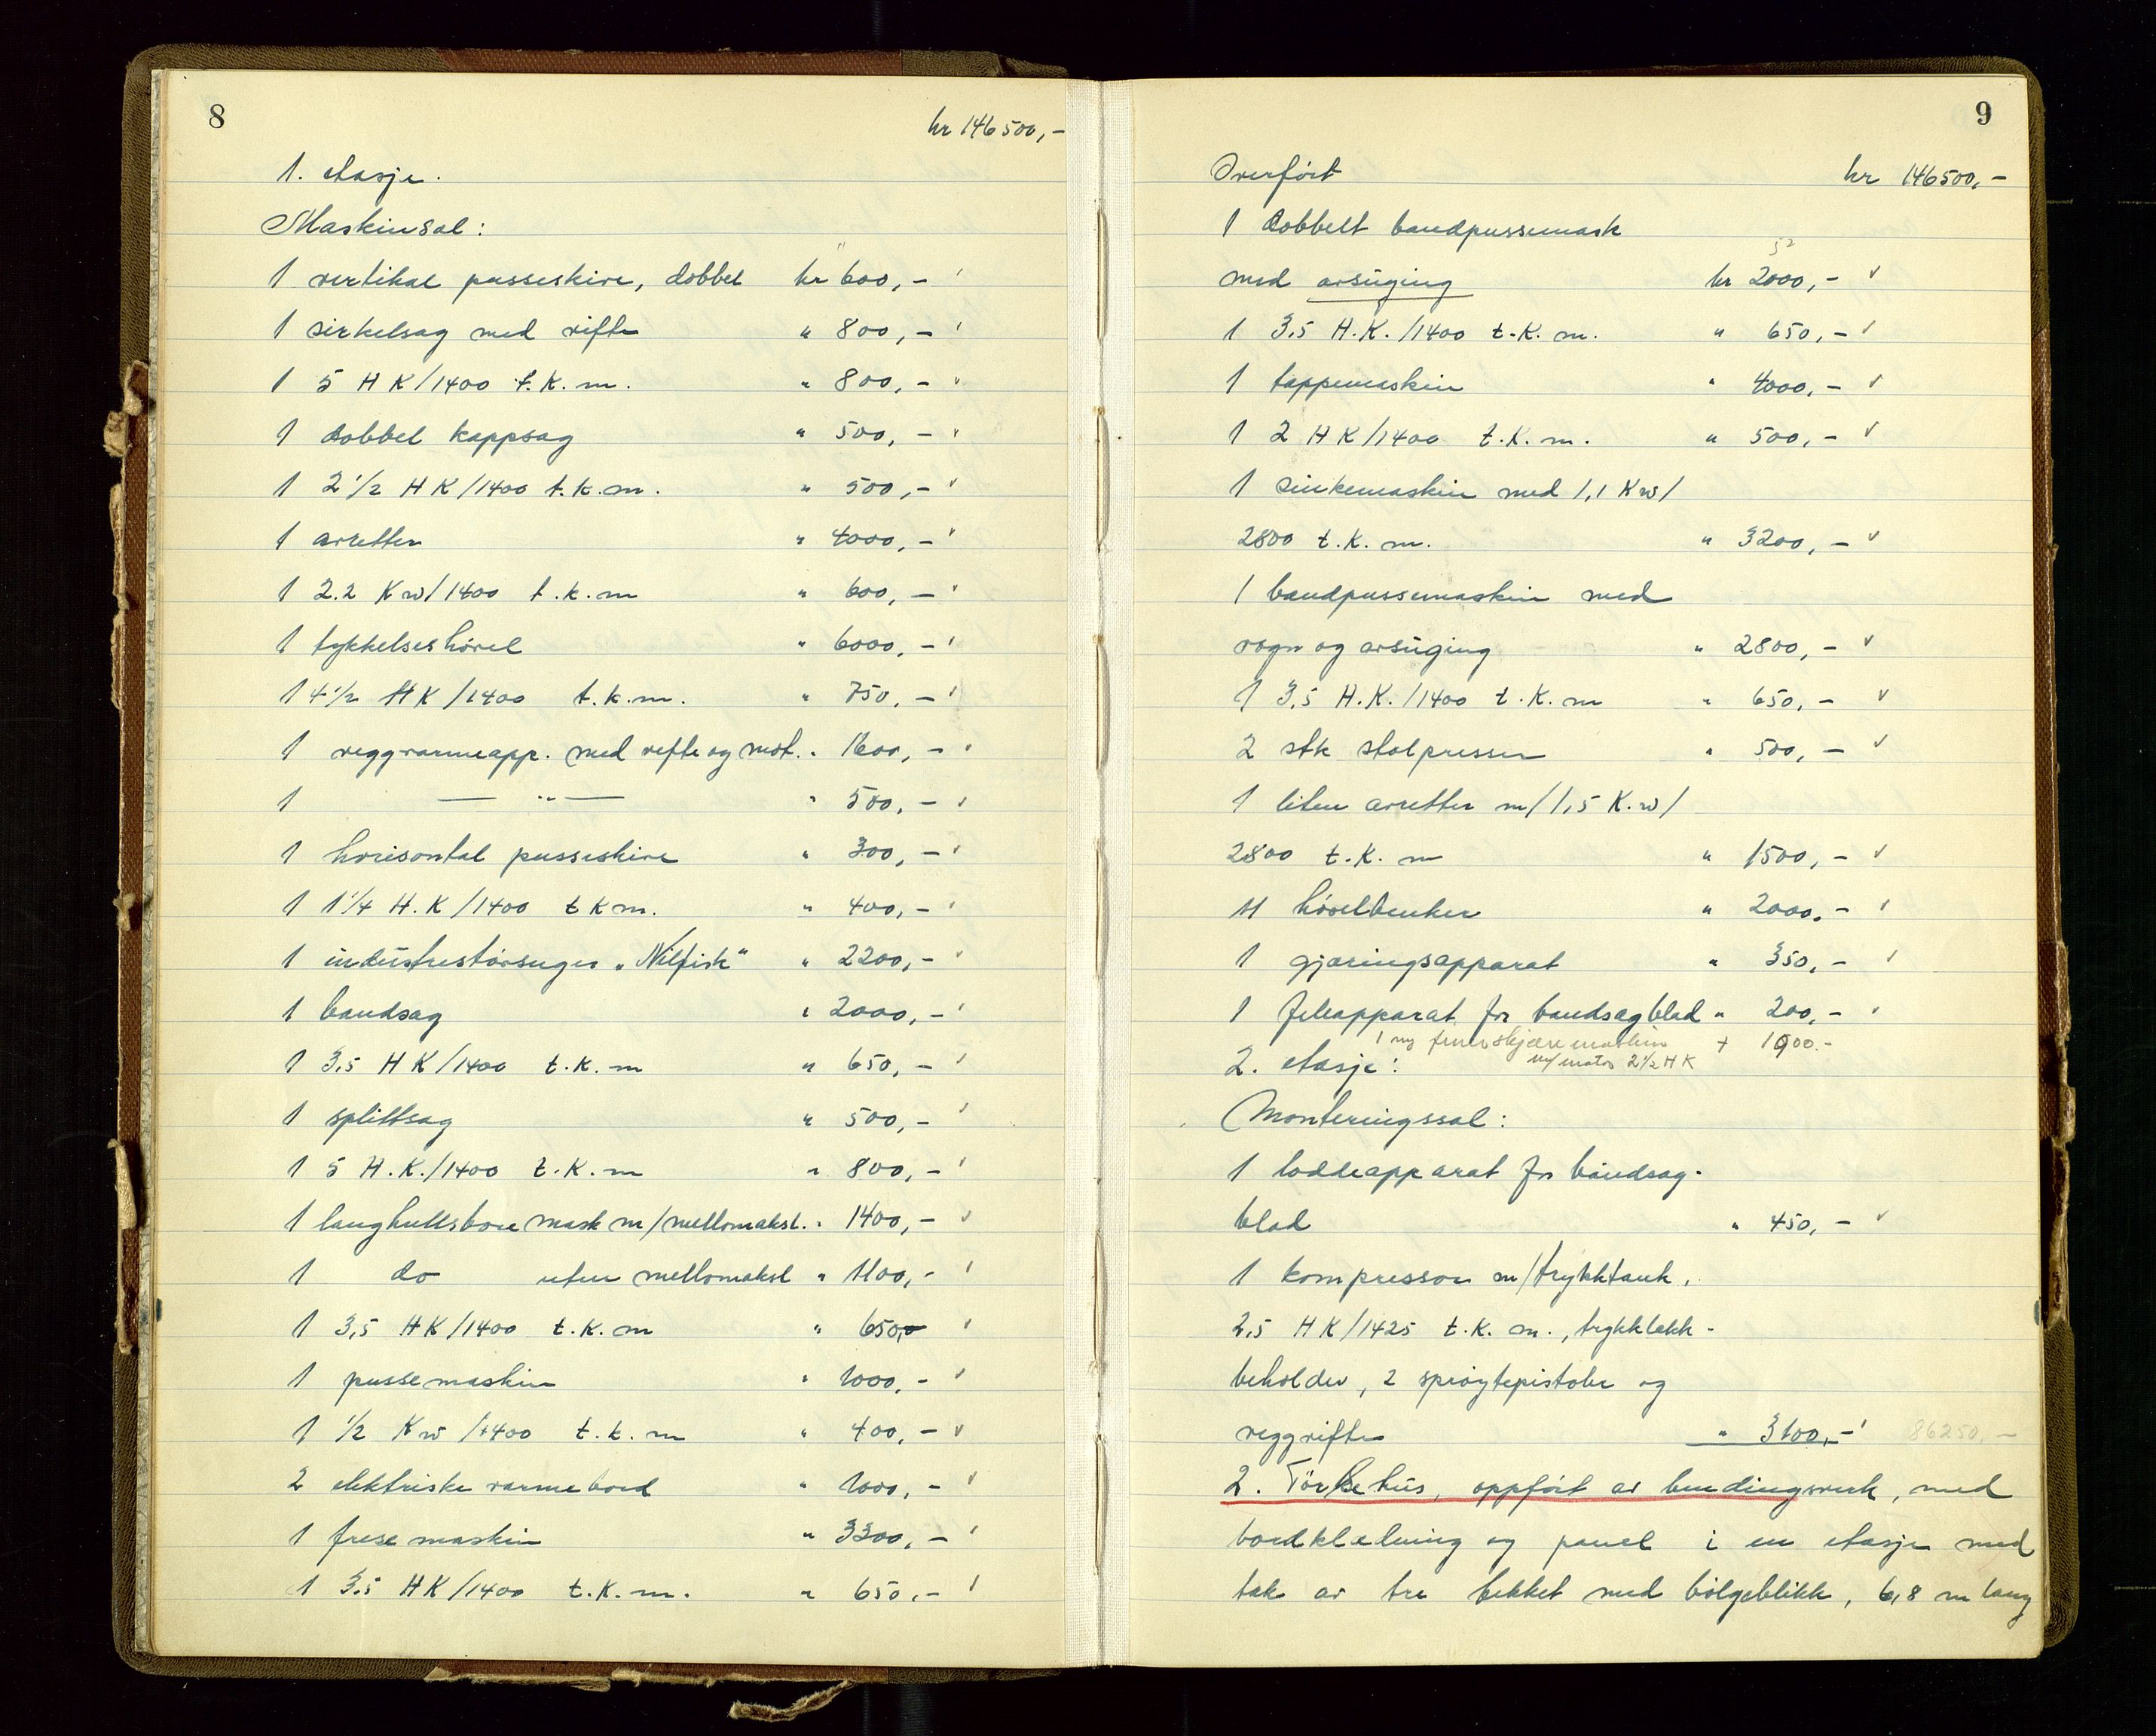 8
kr 146500,-
1. etasje.
Maskinsal:
1 vertikal pusseskive, dobbel kr 600,-
1 sirkelsag med vifte " 800,-
1 5 HK/1400 t.K.m. " 800,-
1 dobbel kappsag " 500,-
1 2 1/2 HK/1400 t.k.m. " 500,-
1 avretter " 4000,-
1 2.2 Kw/1400 t.k.m " 600,-
1 tykkelseshøvel " 6000,-
1 4 1/2 HK/1400 t.k.m. " 750,-
1 veggvarmeapp. med vifte og mot. " 1600,-
1 — " — " 500,-
1 horisontal pusseskive " 300,-
1 1 1/4 H.K/1400 t k m. " 400,-
1 industristøvsuger "Nilfisk" " 2200,-
1 bandsag " 2000,-
1 3,5 HK/1400 t.K.m " 650,-
1 splittsag " 500,-
1 5 H.K./1400 t.K.m " 800,-
1 langhullsbore mask m/mellomaksl. " 1400,-
1 do uten mellomaksl " 1100,-
1 3,5 HK/1400 t.K.m " 650,-
1 pussemaskin " 1000,-
1 1/2 Kw/1400 t.k.m " 400,-
2 elektriske varmebord " 1000,-
1 fresemaskin " 3300,-
1 3,5 HK/1400 t.K.m. " 650,-
9
Overført kr 146500,-
1 dobbelt bandpussemask
med avsuging kr 2000,-
1 3,5 H.K./1400 t.K.m. " 650,-
1 tappemaskin " 4000,-
1 2 HK/1400 t.K.m. " 500,-
1 sinkemaskin med 1,1 Kw/
2800 t.K.m. " 3200,-
1 bandpussemaskin med
vogn og avsuging " 2800,-
1 3,5 H.K./1400 t.K.m " 650,-
2 stk stolpresser " 500,-
1 liten avretter m/1,5 K.w/
2800 t.K.m " 1500,-
11 høvelbenker " 2000,-
1 gjæringsapparat " 350,-
1 fileapparat for bandsagblad " 200,-
1 ny finerskjæremaskin + 1900.-
m/motor 2 1/2 HK
2. etasje:
Monteringssal:
1 loddeapparat for båndsag-
blad " 450,-
1 kompressor m/trykktank,
2,5 HK/1425 t.K.m., trykklakk-
beholder, 2 sprøytepistoler og
veggvifte " 3100,- 86250,-
2. Tørkehus, oppført av bindingsverk, med
bordkledning og panel i en etasje med
tak av tre tekket med bølgeblikk, 6,8 m lang